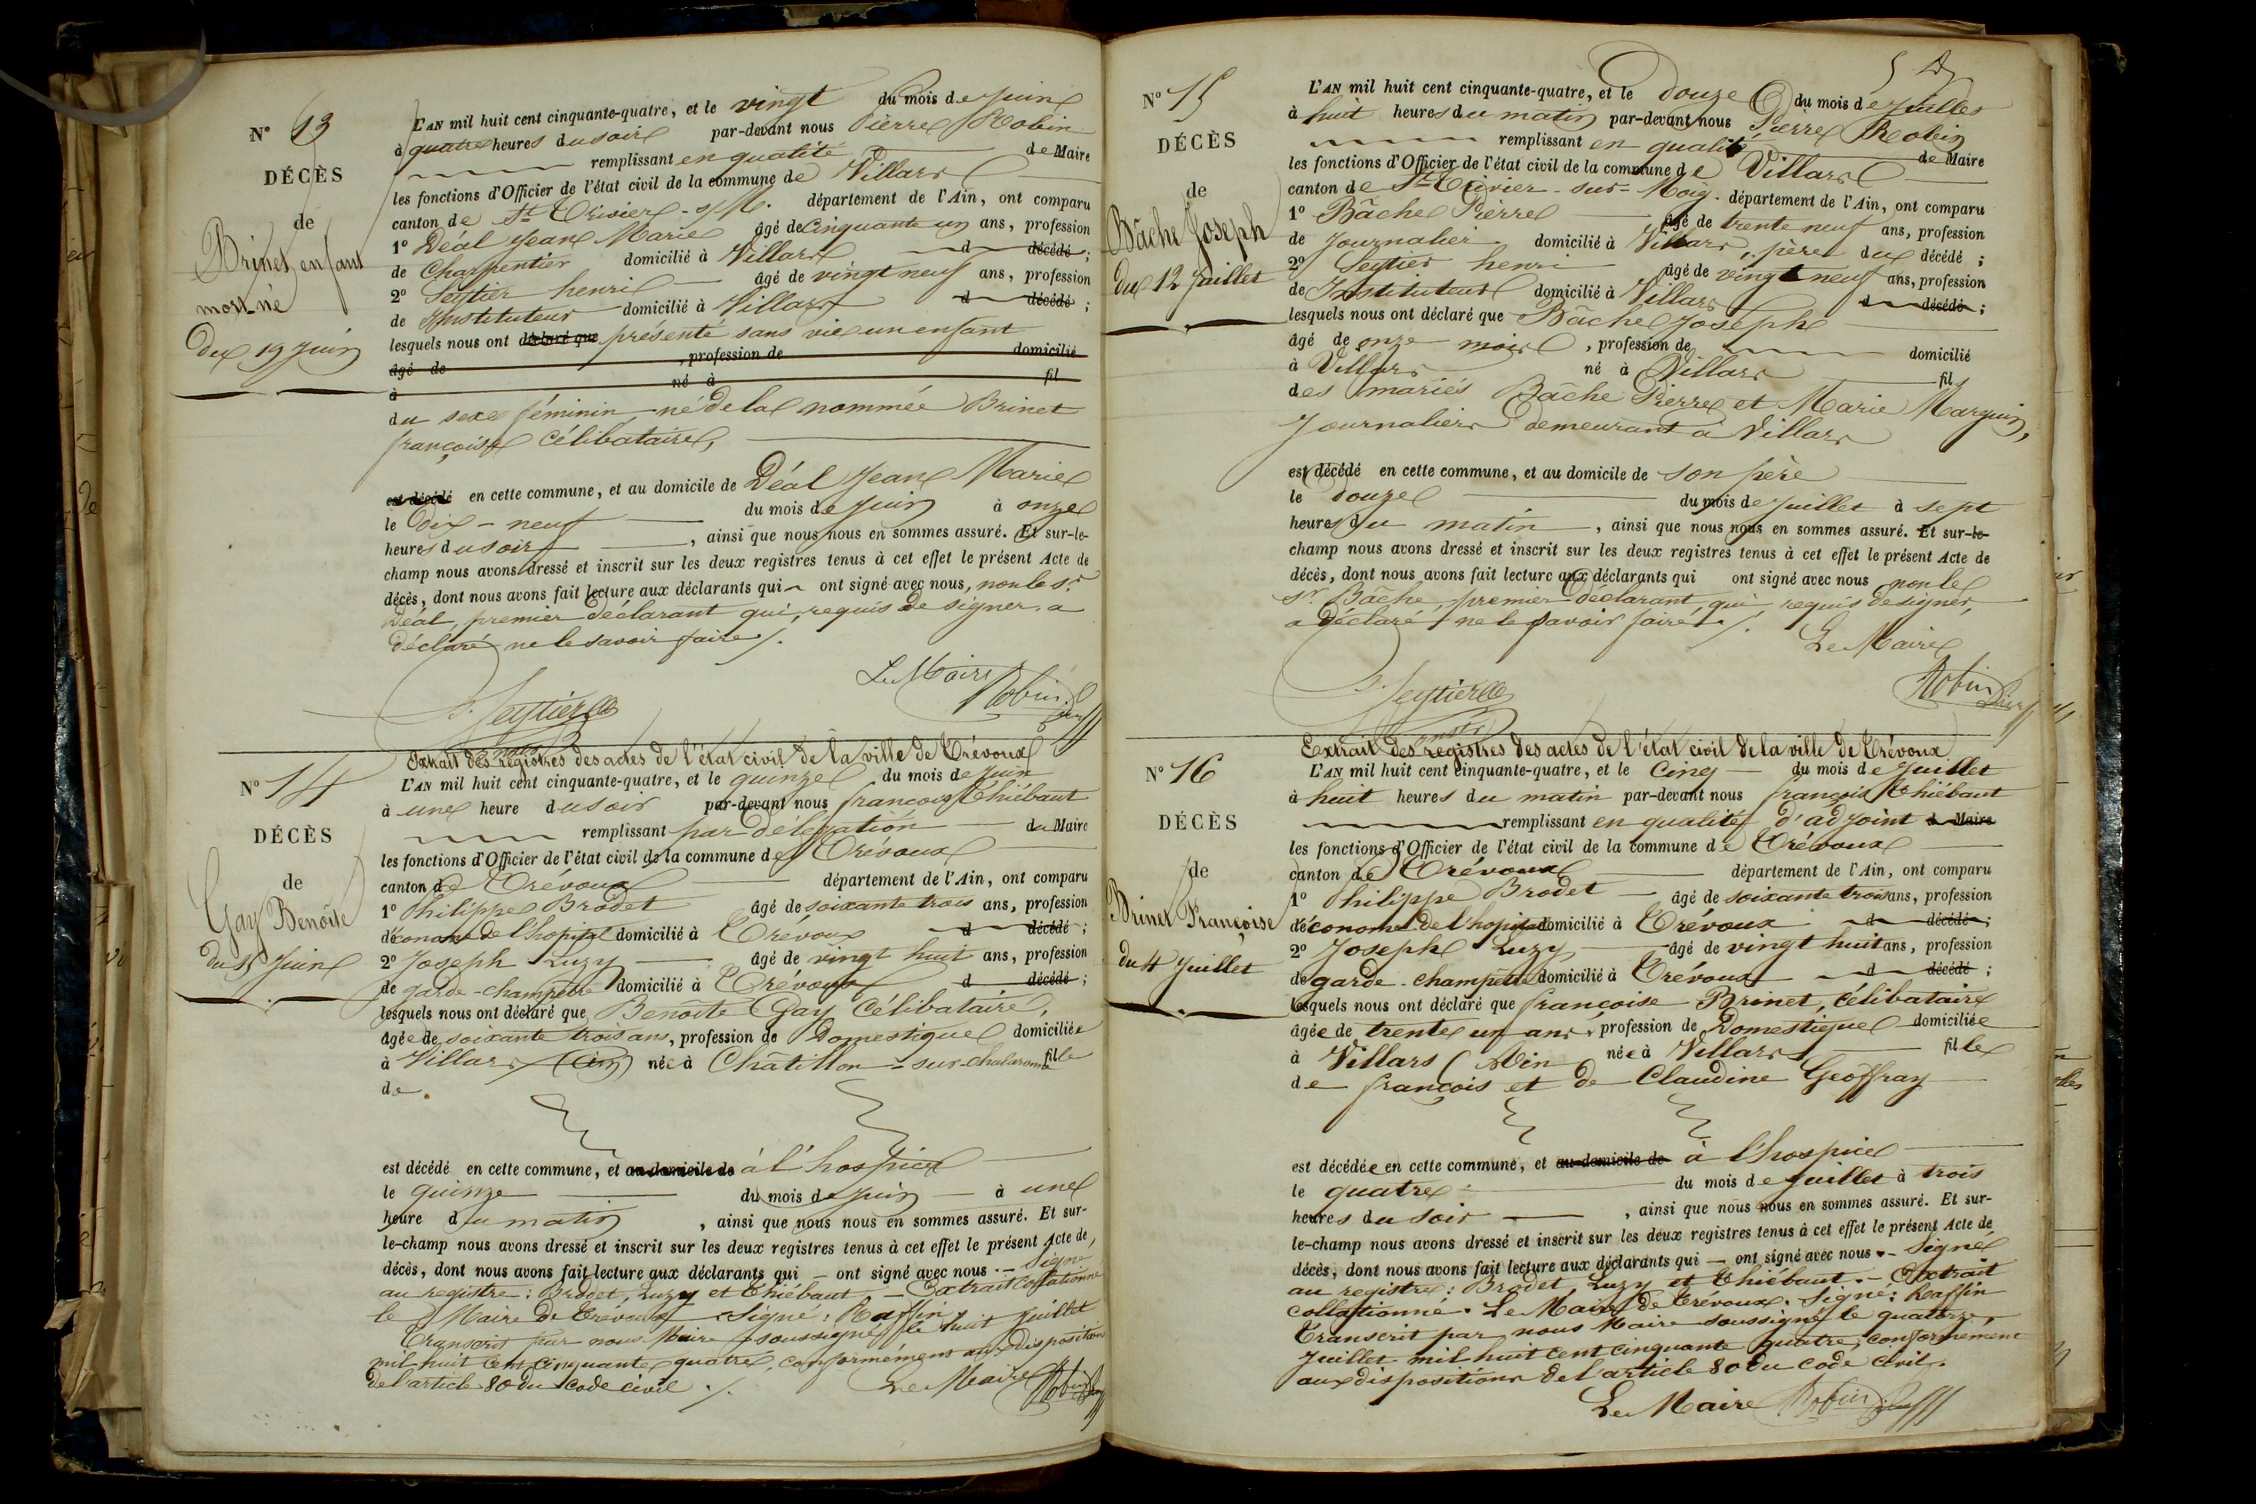 N° 13
DÉCÈS
de
Brinet, enfant
mort-né
du 19 Juin
L'AN mil huit cent cinquante-quatre, et le vingt du mois de Juin
à quatre heures du soir par-devant nous Pierre Robin
remplissant en qualité de Maire
les fonctions d'Officier de l'état civil de la commune de Villars
canton de St Trivier - s/M. département de l'Ain, ont comparu
1° Déal Jean Marie âgé de Cinquante un ans, profession
de Charpentier domicilié à Villars d décédé ;
2° Seytier henri âgé de vingt neuf ans, profession
de Instituteur domicilié à Villars d décédé ;
lesquels nous ont déclaré que présenté sans vie un enfant
âgé de , profession de domicilié
à né à fil
du sexe féminin né de la nommée Brinet
françoise célibataire,
est décédé en cette commune, et au domicile de Déal Jean Marie
le dix-neuf du mois de Juin à onze
heures du soir , ainsi que nous nous en sommes assuré. Et sur-le-
champ nous avons dressé et inscrit sur les deux registres tenus à cet effet le présent Acte de
décès, dont nous avons fait lecture aux déclarants qui ont signé avec nous, non le Sr
Déal, premier déclarant qui, requis de signer, a
déclaré ne le savoir faire ./.
Le Maire
Seytier
Robin
N° 14
DÉCÈS
de
Gay Benoîte
du 15 Juin
Extrait des registres des actes de l'état civil de la ville de Trévoux
L'AN mil huit cent cinquante-quatre, et le quinze du mois de Juin
à une heure du soir par-devant nous françois Thiébaut
remplissant par délégation du Maire
les fonctions d'Officier de l'état civil de la commune de Trévoux
canton de Trévoux département de l'Ain, ont comparu
1° Philippe Brodet âgé de soixante trois ans, profession
d'économe de l'hopital domicilié à Trévoux d décédé ;
2° Joseph Luzy âgé de vingt huit ans, profession
de garde-champêtre domicilié à Trévoux d décédé ;
lesquels nous ont déclaré que Benoîte Gay Célibataire,
âgée de soixante trois ans, profession de Domestique domiciliée
à Villars (Ain) née à Châtillon-sur-chalaronne fille
de
est décédé en cette commune, et au domicile de à l'hospice
le quinze du mois de Juin à une
heure du matin , ainsi que nous nous en sommes assuré. Et sur-
le-champ nous avons dressé et inscrit sur les deux registres tenus à cet effet le présent Acte de
décès, dont nous avons fait lecture aux déclarants qui ont signé avec nous. - Signé
au registre : Brodet, Luzy et Thiébaut - Extrait collationné
le Maire de Trévoux Signé : Raffin
Transcrit par nous Maire soussigné le huit Juillet
mil huit cent cinquante quatre, conformément aux dispositions
de l'article 80 du code civil ./. Le Maire Robin
N° 15
DÉCÈS
de
Bâche Joseph
du 12 Juillet
L'AN mil huit cent cinquante-quatre, et le douze du mois de Juillet
à huit heures du matin par-devant nous Pierre Robin
remplissant en qualité de Maire
les fonctions d'Officier de l'état civil de la commune de Villars
canton de St Trivier-sur-Moig. département de l'Ain, ont comparu
1° Bâche Pierre âgé de trente neuf ans, profession
de Journalier domicilié à Villars, père du décédé ;
2° Seytier henri âgé de vingt neuf ans, profession
de Instituteur domicilié à Villars d décédé ;
lesquels nous ont déclaré que Bâche Joseph
âgé de onze mois , profession de domicilié
à Villars né à Villars fil
des mariés Bâche Pierre et Marie Marguin,
Journaliers demeurant à Villars
est décédé en cette commune, et au domicile de son père
le douze du mois de Juillet à sept
heures du matin , ainsi que nous nous en sommes assuré. Et sur-le-
champ nous avons dressé et inscrit sur les deux registres tenus à cet effet le présent Acte de
décès, dont nous avons fait lecture aux déclarants qui ont signé avec nous non le
Sr Bâche, premier déclarant, qui, requis de signer,
a déclaré ne le savoir faire ./.
Le Maire
Seytier
Robin
N° 16
DÉCÈS
de
Brinet Françoise
du 4 Juillet
Extrait des registres des actes de l'état civil de la ville de Trévoux
L'AN mil huit cent cinquante-quatre, et le Cinq du mois de Juillet
à huit heures du matin par-devant nous françois Thiébaut
remplissant en qualité d'adjoint d Maire
les fonctions d'Officier de l'état civil de la commune de Trévoux
canton de Trévoux département de l'Ain, ont comparu
1° Philippe Brodet âgé de soixante trois ans, profession
d'économe de l'hopital domicilié à Trévoux d décédé ;
2° Joseph Luzy âgé de vingt huit ans, profession
de garde-champêtre domicilié à Trévoux d décédé ;
lesquels nous ont déclaré que françoise Brinet, célibataire
âgée de trente un ans, profession de Domestique domiciliée
à Villars (Ain née à Villars fille
de françois et de Claudine Geoffray
est décédée en cette commune, et au domicile de à l'hospice
le quatre du mois de Juillet à trois
heures du soir , ainsi que nous nous en sommes assuré. Et sur-
le-champ nous avons dressé et inscrit sur les deux registres tenus à cet effet le présent Acte de
décès, dont nous avons fait lecture aux déclarants qui ont signé avec nous - Signé
au registre : Brodet, Luzy et Thiébaut. - Extrait
collationné. Le Maire de Trévoux. Signé : Raffin
Transcrit par nous Maire soussigné le quatorze,
Juillet mil huit cent cinquante quatre, conformément
aux dispositions de l'article 80 du code civil.
Le Maire Robin